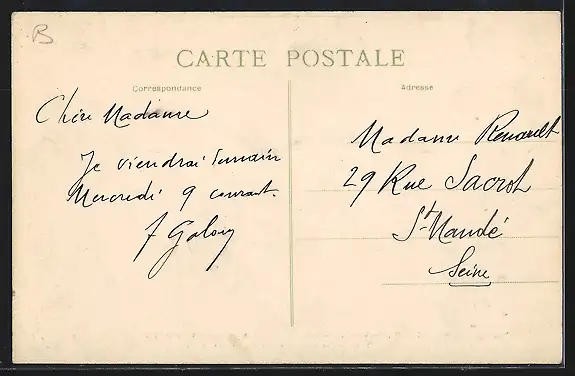 B
CARTE POSTALE
Correspondance
Chère Madame
Je viendrai demain
Mercredi 9 courant.
Adresse
Madame Renault
29 Rue Sacrot
St Mandé
Seine